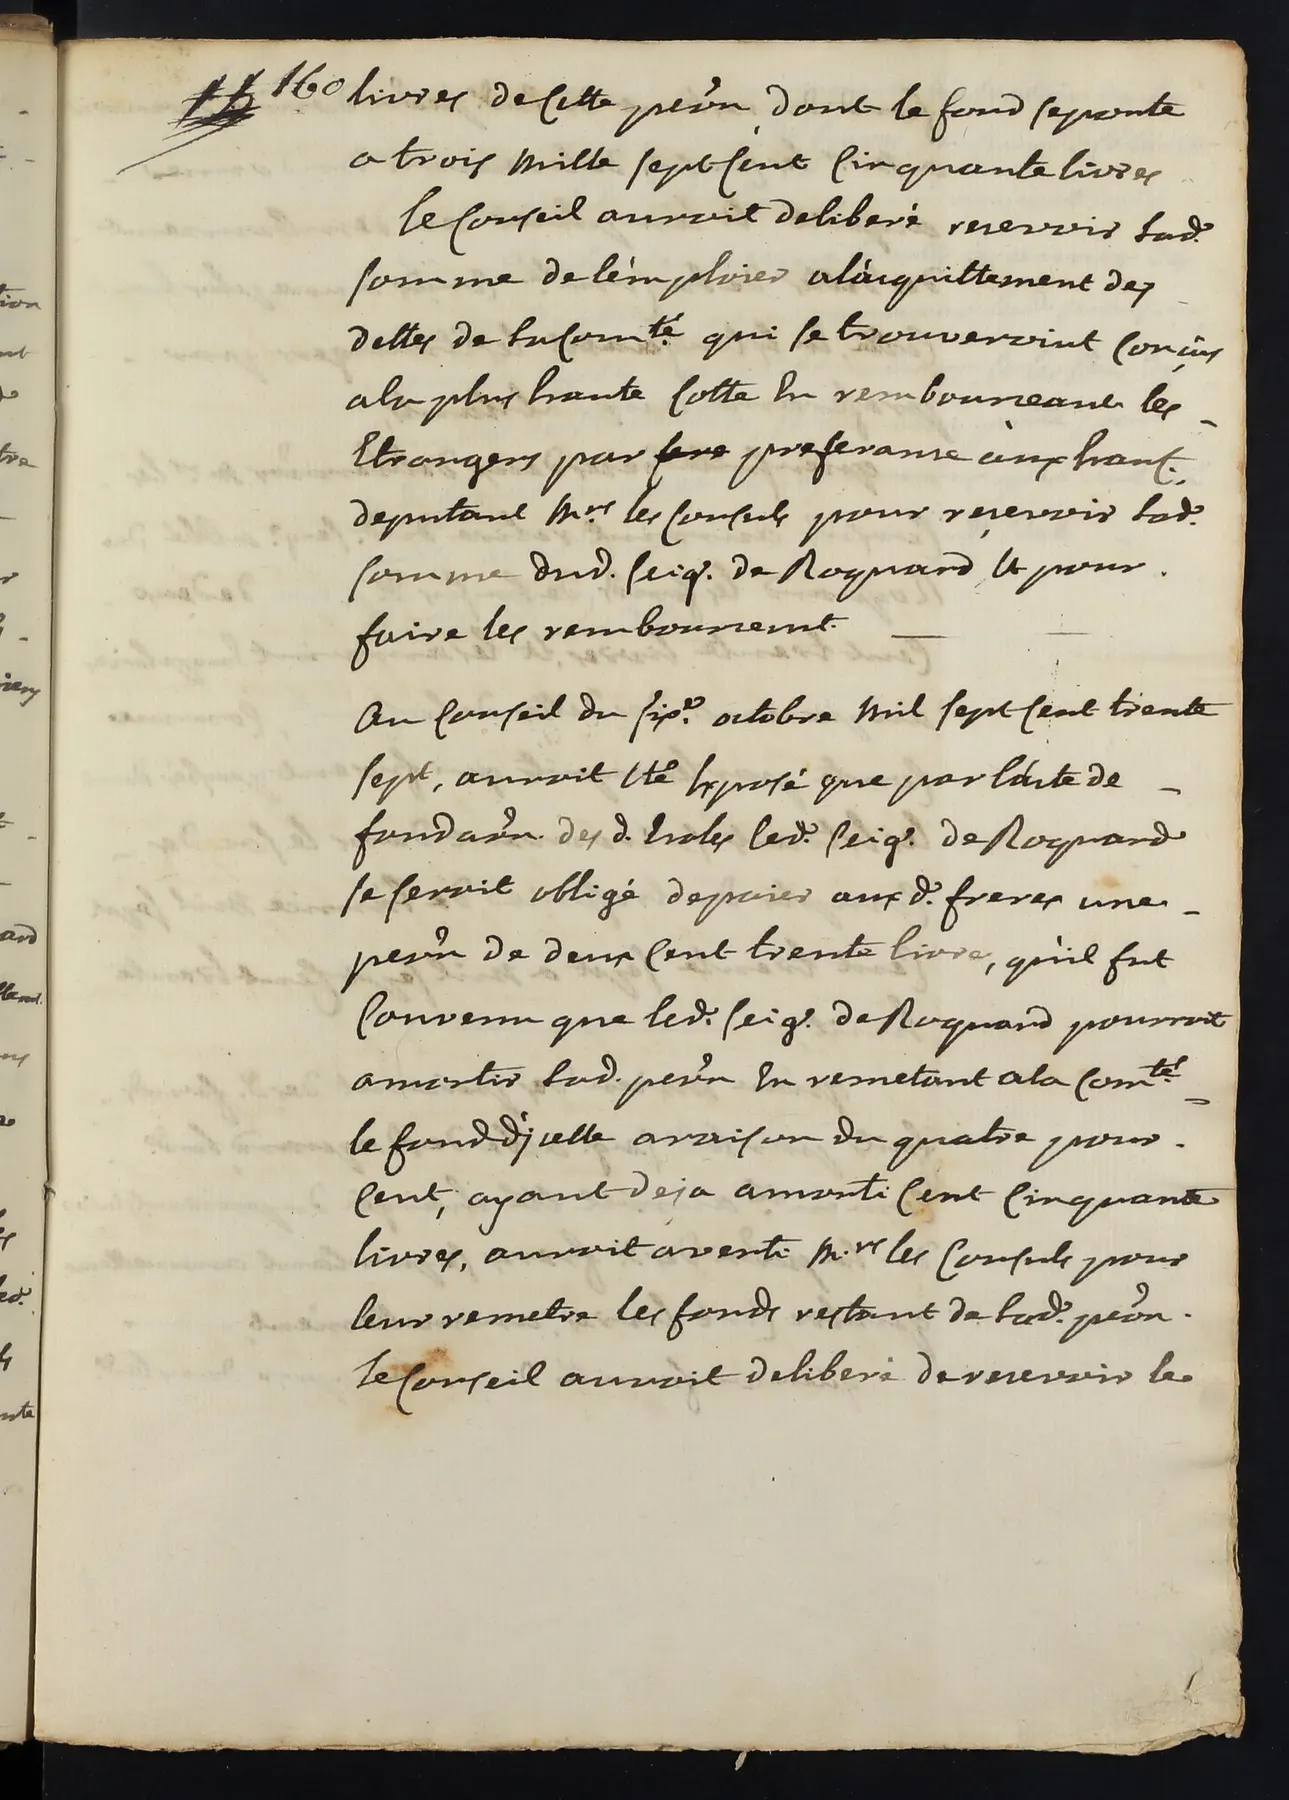 160 livres de cette pe͠on dont le fond se porte
a trois mille sept cent cinquante livres
le conseil auroit deliberé recevoir lad.e
somme de lémploier a láquittement des
dettes de la com.té qui se trouveroint conçus
a la plus haute cotte en rembourceant les
Etrangers par preferance aux hant.
deputant m.rs les consuls pour recevoir lad.e
somme dud. seig.r de Roquard et pour
faire les remboursemt.
Au conseil du six.e octobre mil sept cent trente
sept, auroit eté exposé que par lácte de
fondaõn des d. Ecoles led.t seig.r de Roquard
se seroit obligé de paier aux d.t freres une
pe͠on de deux cent trente livre, qu'il fut
convenu que led.t seig.r de Roquard pourroit
amortir lad. pe͠on en remetant a la com.té
le fond d'jcelle a raison du quatre pour
cent, ayant deja amorti cent cinquante
livres, auroit averti m.rs les consuls pour
leur remetre les fonds restant de lad.e pe͠on.
le conseil auroit deliberé de recevoir le